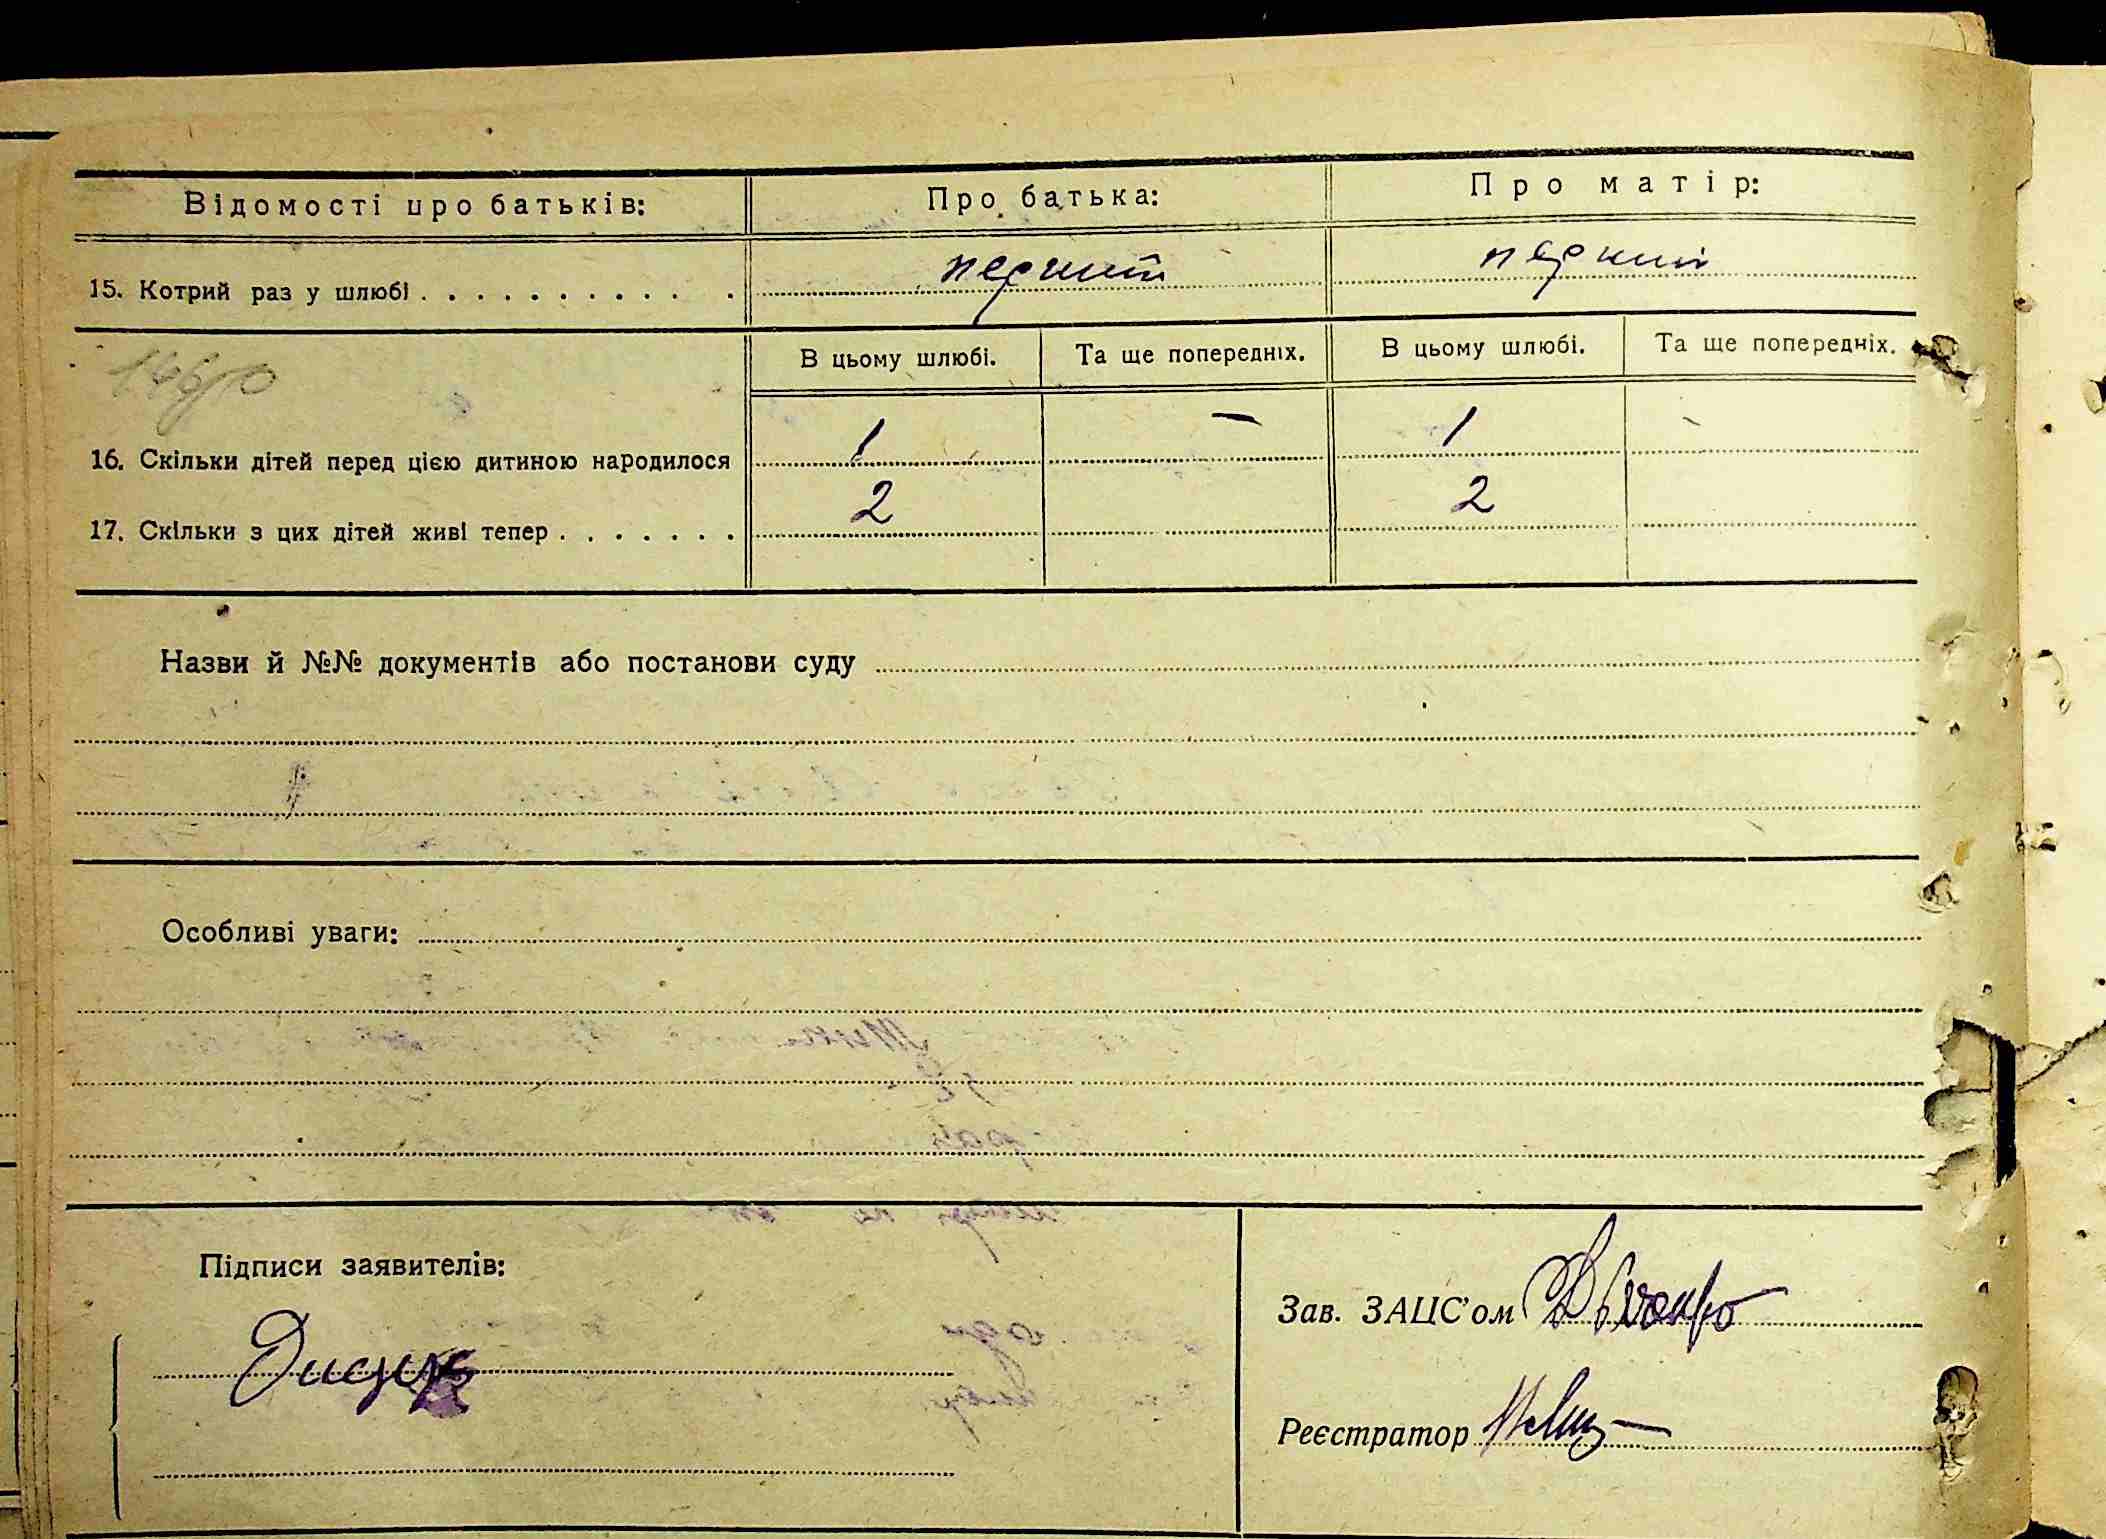 Відомості про батьків: Про батька: Про матір:
15. Котрий раз у шлюбі перший перший
В цьому шлюбі. Та ще попередніх. В цьому шлюбі. Та ще попередніх.
16. Скільки дітей перед цією дитиною народилося 1 — 1 -
17. Скільки з цих дітей живі тепер 2 2
Назви й №№ документів або постанови суду
Особливі уваги:
Підписи заявителів:
Зав. ЗАЦС’ом
Реєстратор